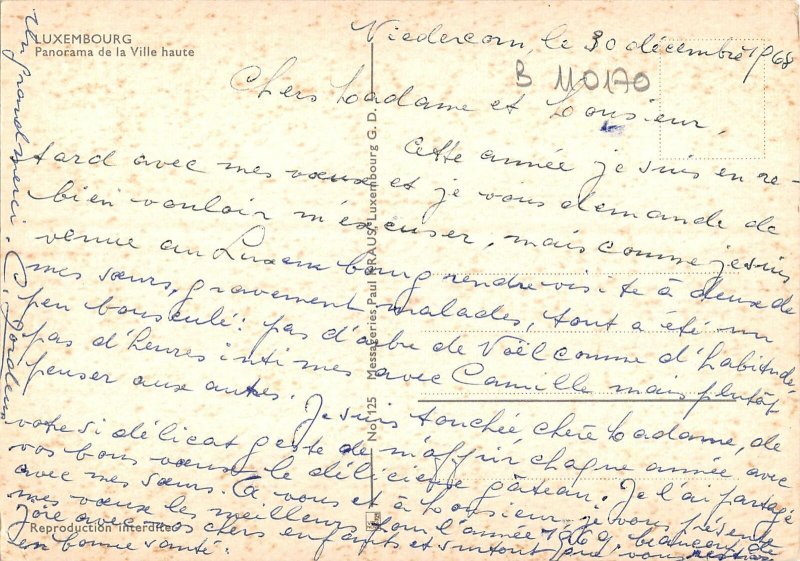 LUXEMBOURG
Panorama de la Ville haute
Niedercorn, le 30 décembre 1968
B 110170
Chers Madame et Monsieur,
Cette année je suis en re-
tard avec mes vœux et je vous demande de
bien vouloir m'excuser, mais comme je suis
venue au Luxembourg rendre visite à deux de
mes sœurs, gravement malades, tout a été un
peu bousculé: pas d'arbre de Noël comme d'habitude,
pas d'heures intimes avec Camille mais plutôt
penser aux autres.
Je suis touchée chère Madame, de
votre si délicat geste de m'offrir chaque année avec
vos bons vœux le délicieux gâteau. Je l'ai partagé
avec mes sœurs. A vous et à Monsieur je vous présente
mes vœux les meilleurs pour l'année 1969, beaucoup de
joie avec vos chers enfants et surtout que vous restiez
en bonne santé.
Un grand merci.
No 1125 Messageries Paul KRAUS, Luxembourg G. D.
Reproduction interdite